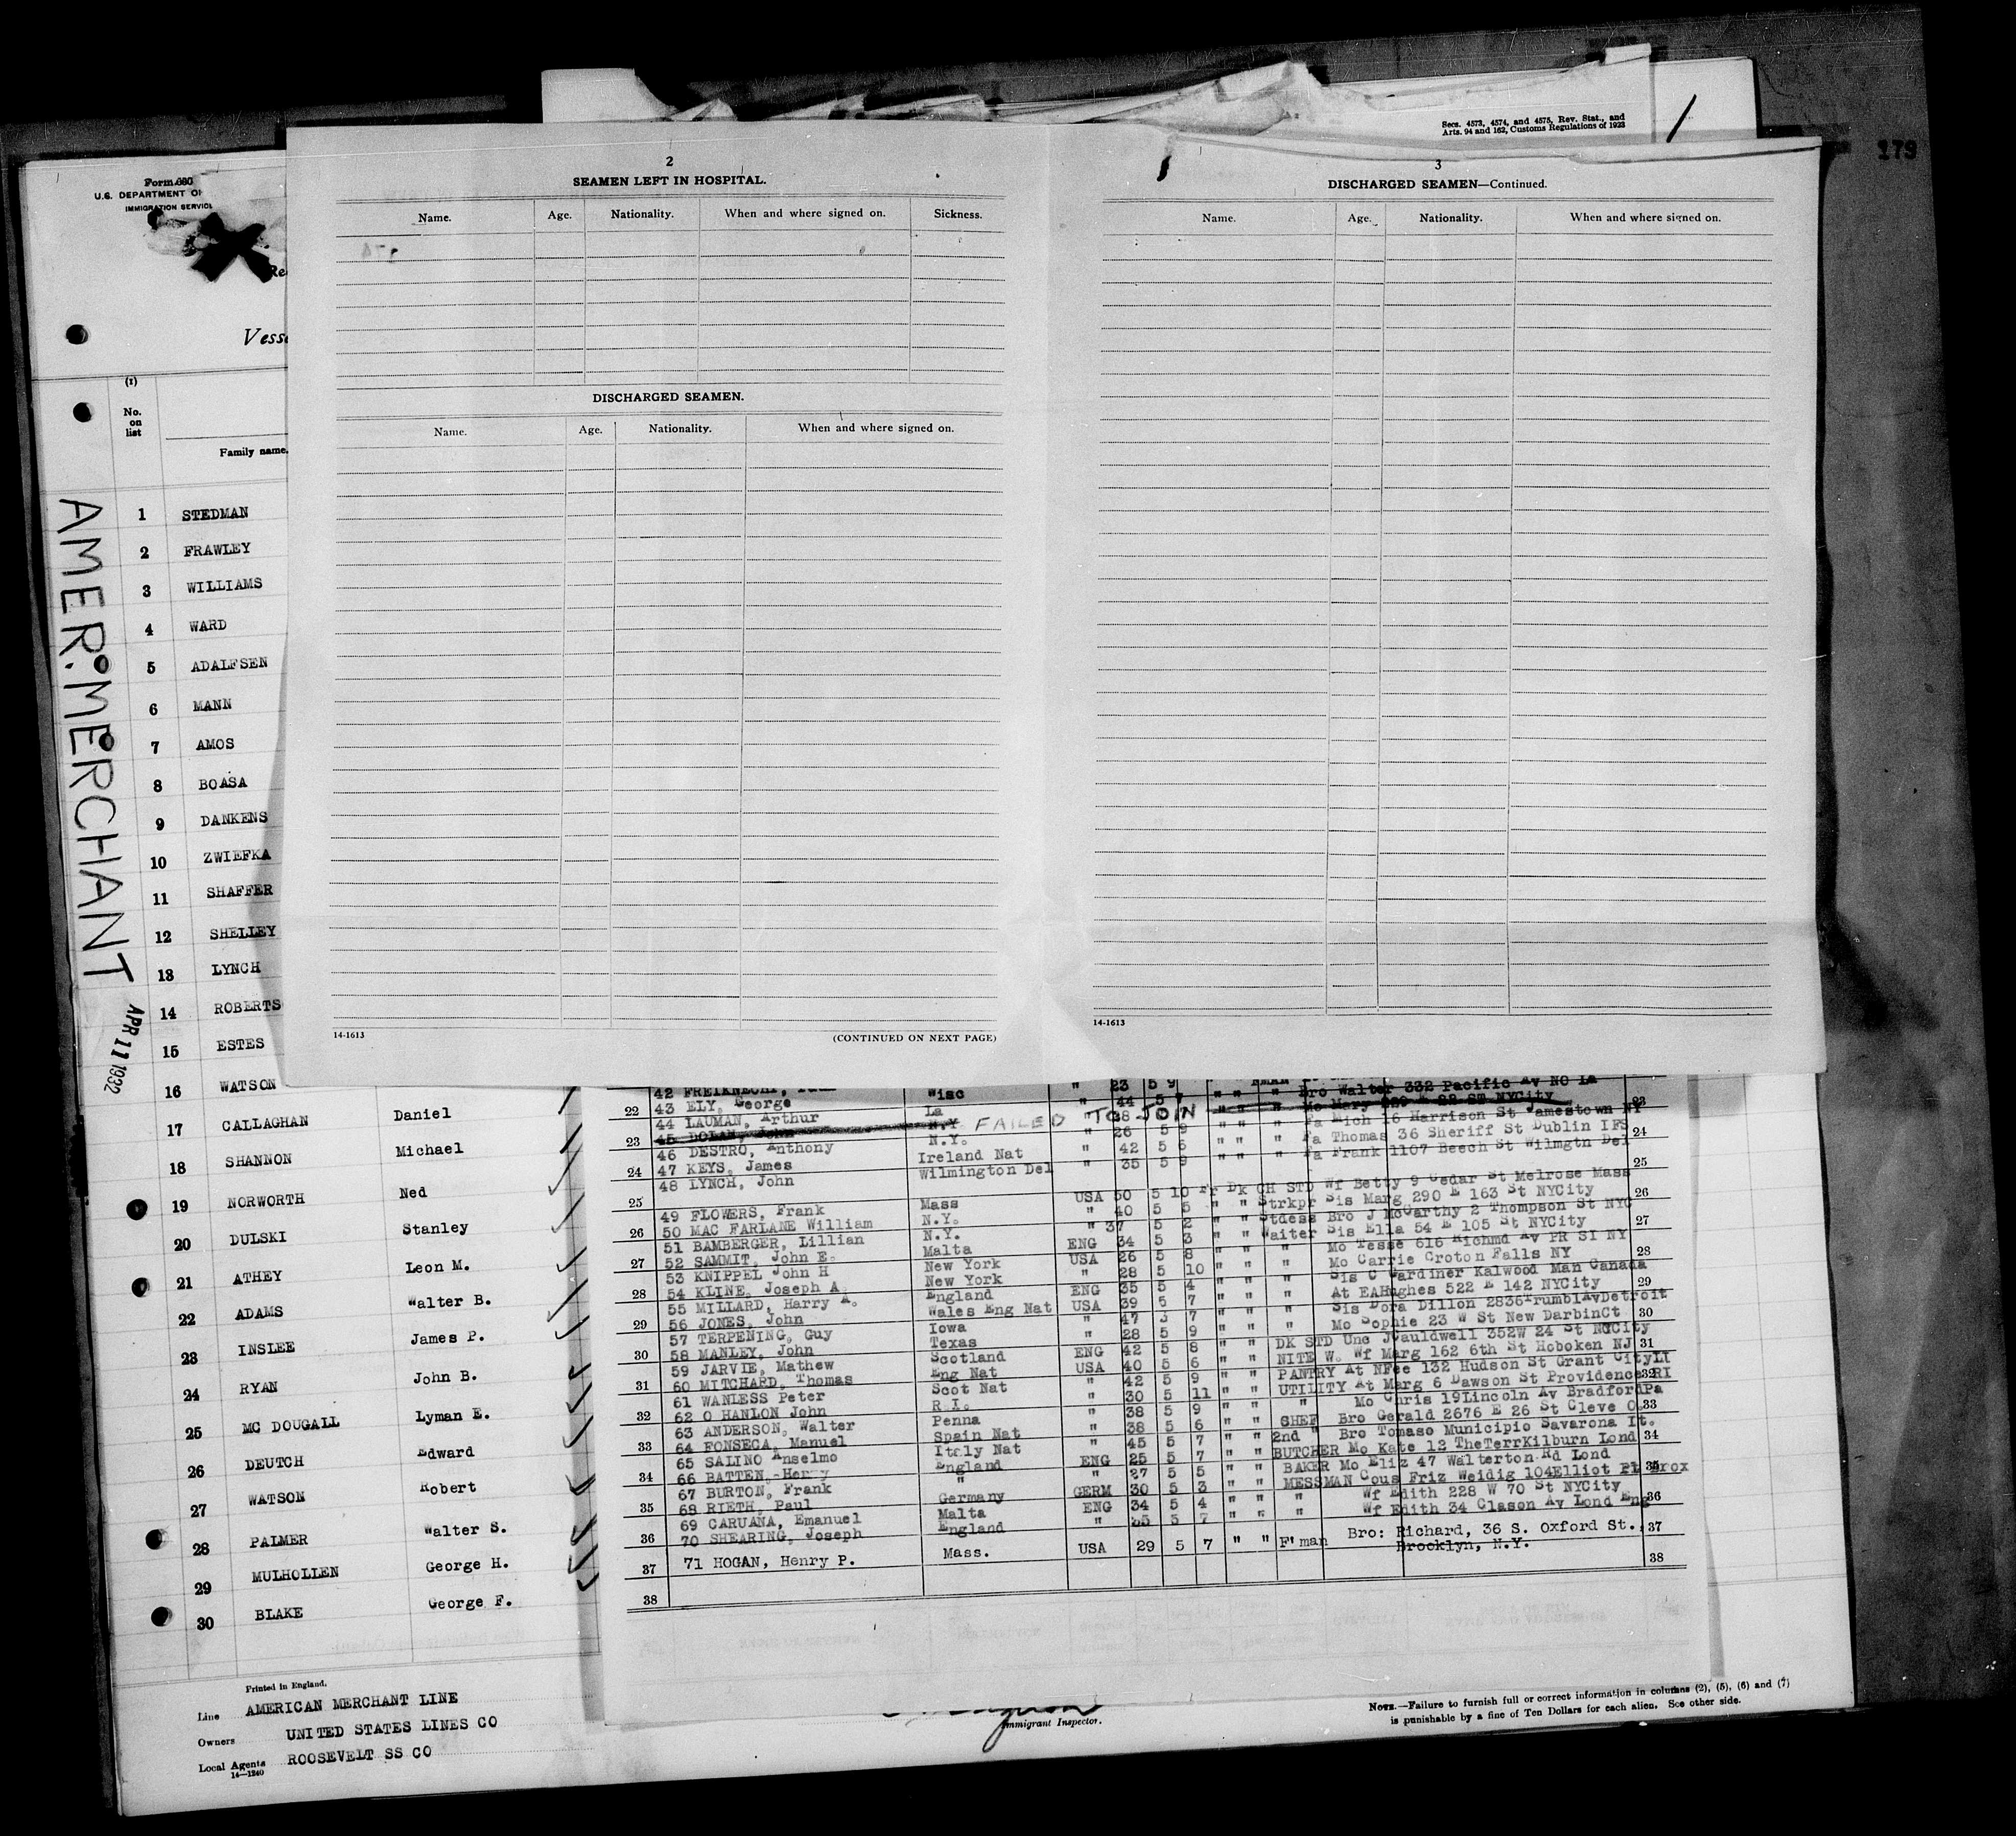 Secs. 4573, 4574, and 4575, Rev. Stat., and
Arts. 94 and 162, Customs Regulations of 1923
179
Form 680
U.S. DEPARTMENT OF
IMMIGRATION SERVICE
2
SEAMEN LEFT IN HOSPITAL.
Name. Age. Nationality. When and where signed on. Sickness.
DISCHARGED SEAMEN.
Name. Age. Nationality. When and where signed on.
14-1613 (CONTINUED ON NEXT PAGE)
3
DISCHARGED SEAMEN—Continued.
Name. Age. Nationality. When and where signed on.
14-1613
(1)
No.
on
list
Family name.
AMER. MERCHANT
APR 11 1932
1 STEDMAN
2 FRAWLEY
3 WILLIAMS
4 WARD
5 ADALFSEN
6 MANN
7 AMOS
8 BOASA
9 DANKENS
10 ZWIEFKA
11 SHAFFER
12 SHELLEY
13 LYNCH
14 ROBERTS
15 ESTES
16 WATSON
17 CALLAGHAN Daniel
18 SHANNON Michael
19 NORWORTH Ned
20 DULSKI Stanley
21 ATHEY Leon M.
22 ADAMS Walter B.
23 INSLEE James P.
24 RYAN John B.
25 MC DOUGALL Lyman E.
26 DEUTCH Edward
27 WATSON Robert
28 PALMER Walter S.
29 MULHOLLEN George H.
30 BLAKE George F.
42 FREIKNECHT, Wisc " 23 5 9
43 ELY, George La " 44 5 7 " " " Bro Walter 332 Pacific Av NO La
44 LAUMAN, Arthur N.Y
45 DOLAN, John FAILED TO JOIN
46 DESTRO, Anthony N.Y. " 26 5 9 " " " Fa Mich 16 Harrison St Jamestown NY
47 KEYS, James Ireland Nat " 42 5 6 " " " Fa Thomas 36 Sheriff St Dublin IFS
48 LYNCH, John Wilmington Del " 35 5 9 " " " Fa Frank 1107 Beech St Wilmgtn Del
49 FLOWERS, Frank Mass USA 50 5 10 Fr Dk CH STD Wf Betty 9 Cedar St Melrose Mass
50 MAC FARLANE William N.Y. " 40 5 5 " " Strkpr Sis Marg 290 E 163 St NYCity
51 BAMBERGER, Lillian N.Y. " 37 5 2 " " Stdess Bro J McCarthy 2 Thompson St NYC
52 SAMMIT, John E. Malta ENG 34 5 3 " " Waiter Sis Ella 54 E 105 St NYCity
53 KNIPPEL John H New York USA 26 5 8 " " " Mo Tesse 616 Richmd Av PR SI NY
54 KLINE, Joseph A. New York " 28 5 10 " " " Mo Carrie Croton Falls NY
55 MILLARD, Harry A. England ENG 35 5 4 " " " Sis C Gardiner Kalwood Man Canada
56 JONES, John Wales Eng Nat USA 39 5 7 " " " At EAHughes 522 E 142 NYCity
57 TERPENING, Guy Iowa " 47 5 7 " " " Sis Dora Dillon 2836TrumblAvDetroit
58 MANLEY, John Texas " 28 5 9 " " " Mo Sophie 23 W St New DarbinCt
59 JARVIE, Mathew Scotland ENG 42 5 8 " " DK STD Unc JCauldwell 352W 24 St NYCity
60 MITCHARD, Thomas Eng Nat USA 40 5 6 " " NITE W. Wf Marg 162 6th St Hoboken NJ
61 WANLESS Peter Scot Nat " 42 5 9 " " PANTRY At NFee 132 Hudson St Grant CityLI
62 O HANLON John R.I. " 30 5 11 " " UTILITY At Marg 6 Dawson St Providence RI
63 ANDERSON, Walter Penna " 38 5 9 " " " Mo Chris 19Lincoln Av BradfordPa
64 FONSECA, Manuel Spain Nat " 38 5 6 " " CHEF Bro Gerald 2676 E 26 St Cleve O.
65 SALINO Anselmo Italy Nat " 45 5 7 " " 2nd " Bro Tomaso Municipio Savarona It.
66 BATTEN, Henry England ENG 25 5 7 " " BUTCHER Mo Kate 12 TheTerrKilburn Lond
67 BURTON, Frank " " 27 5 5 " " BAKER Mo Eliz 47 Walterton Rd Lond
68 RIETH, Paul Germany GERM 30 5 3 " " MESSMAN Cous Friz Weidig 104Elliot Pl Brox
69 CARUANA, Emanuel Malta ENG 34 5 4 " " " Wf Edith 228 W 70 St NYCity
70 SHEARING, Joseph England " 35 5 7 " " " Wf Edith 34 Clason Av Lond Eng
71 HOGAN, Henry P. Mass. USA 29 5 7 " " F'man Bro: Richard, 36 S. Oxford St.,
Brooklyn, N.Y.
Printed in England.
Line AMERICAN MERCHANT LINE
Owners UNITED STATES LINES CO
Local Agents ROOSEVELT SS CO
14—1240
Immigrant Inspector.
NOTE.—Failure to furnish full or correct information in columns (2), (5), (6) and (7)
is punishable by a fine of Ten Dollars for each alien. See other side.